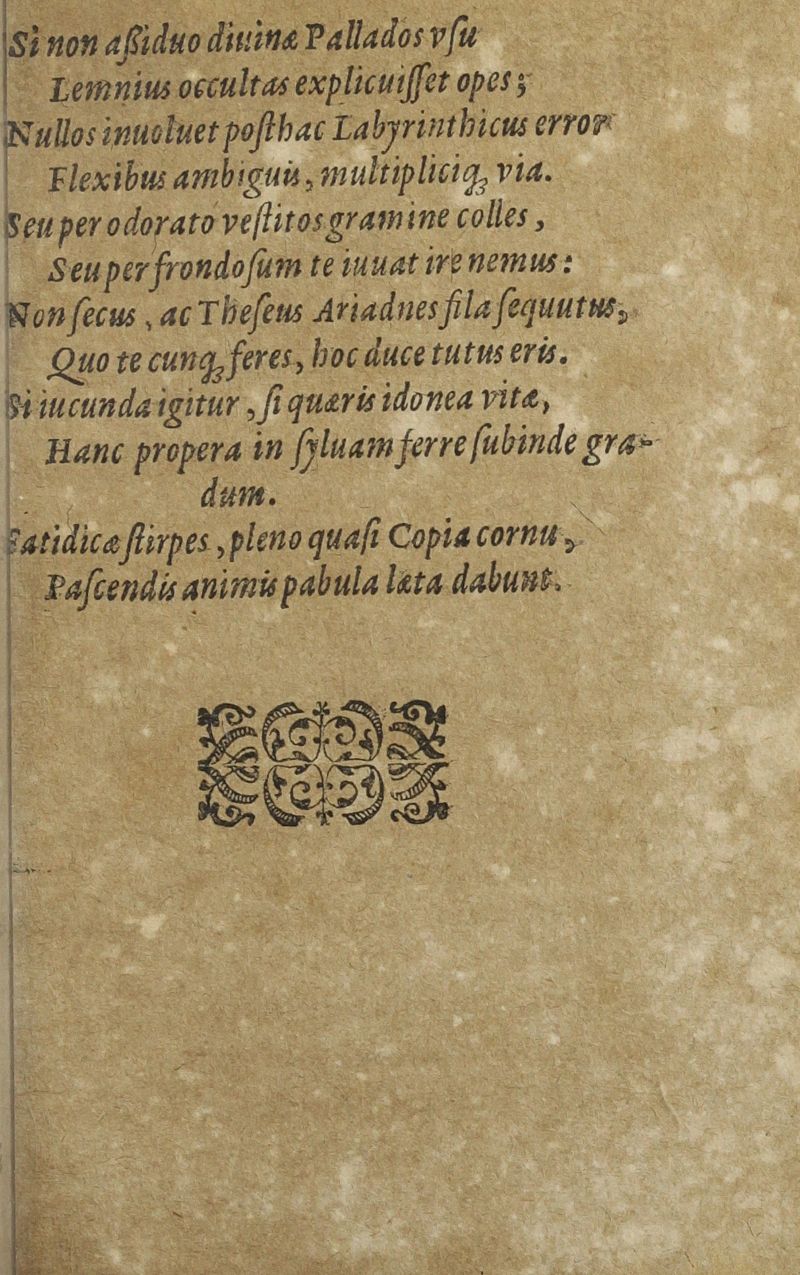 Si non aßiduo diuinæ Pallados vſu
Lemnius occultas explicuiſſet opes;
Nullos inuoluet poſthac Labyrinthicus error
Flexibus ambiguis, multipliciq; via.
Seu per odorato veſtitos gramine colles,
Seu per frondoſum te iuuat ire nemus:
Non ſecus, ac Theſeus Ariadnes fila ſequutus,
Quo te cunq; feres, hoc duce tutus eris.
Si iucunda igitur, ſi quæris idonea vitæ,
Hanc propera in ſyluam ferre ſubinde gra-
dum.
Fatidicæ ſtirpes, pleno quaſi Copia cornu,
Paſcendis animis pabula læta dabunt.